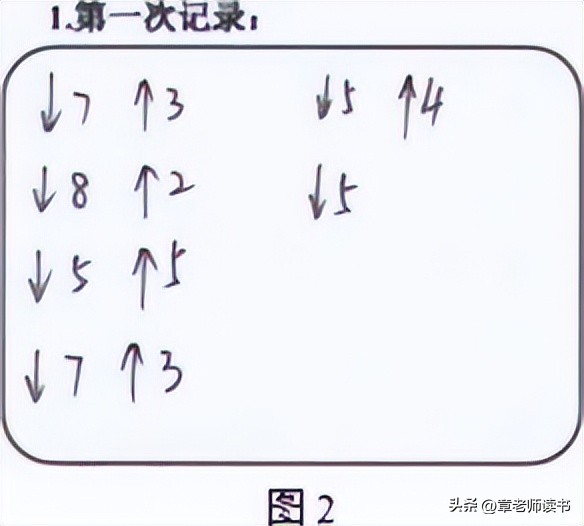 1.第一次记录：
↓7 ↑3
↓8 ↑2
↓5 ↑5
↓7 ↑3
↓5 ↑4
↓5
图2
头条 @章老师读书